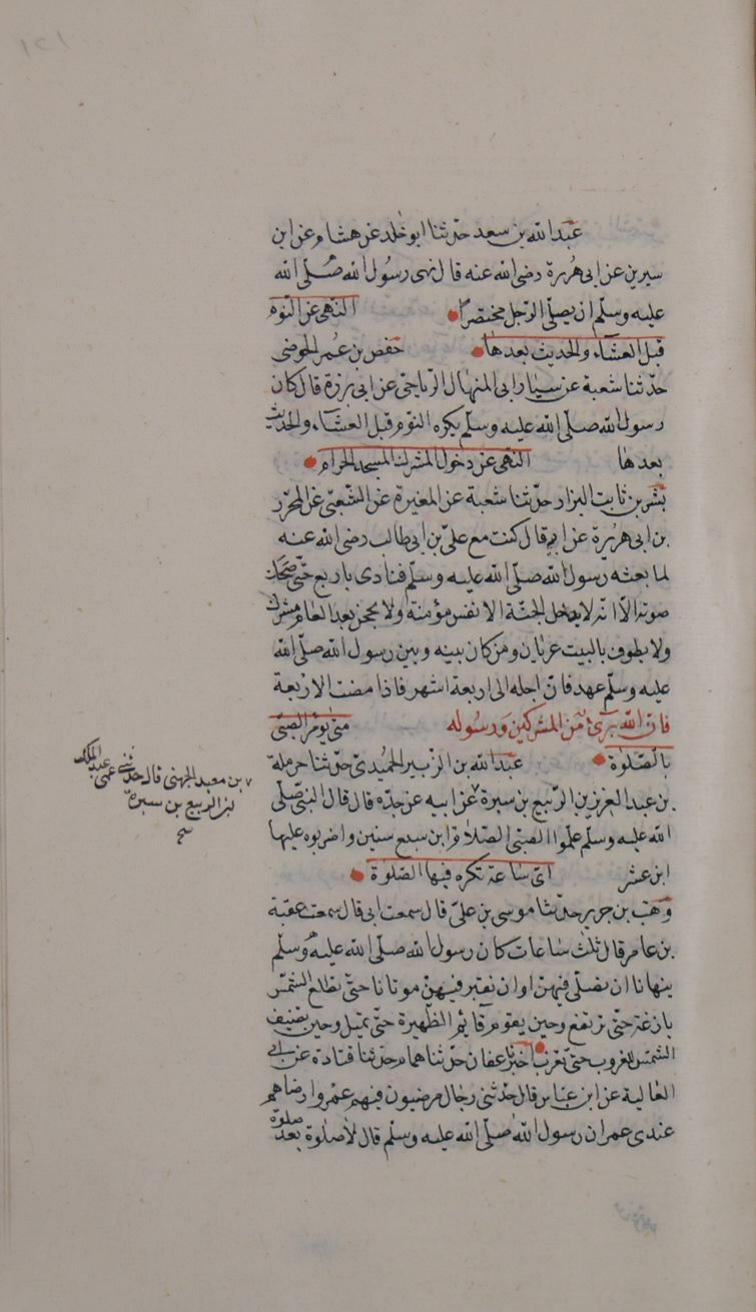 ١٢١
عبد الله بن سعيد حدثنا ابو خلد عن هشام عن ابن
سيرين عن ابى هريرة رضى الله عنه قال نهى رسول الله صلى الله
عليه وسلم ان يصلى الرجل مختصرا النهى عن النوم
قبل العشاء والحديث بعدها حفص بن عمر الحوضى
حدثنا شعبة عن سيار ابى المنهال الرياحى عن ابى برزة قال كان
رسول الله صلى الله عليه وسلم يكره النوم قبل العشاء والحديث
بعدها النهى عن دخول المشرك المسجد الحرام
بشر بن ثابت البزار حدثنا شعبة عن المغيرة عن الشعبى عن المحرر
بن ابى هريرة عن ابيه قال كنت مع على بن ابى طالب رضى الله عنه
لما بعثه رسول الله صلى الله عليه وسلم فنادى باربع حتى صحل
صوته الا انه لا يدخل الجنة الا نفس مؤمنة ولا يحجن بعد العام مشرك
ولا يطوف بالبيت عريان ومن كان بينه وبين رسول الله صلى الله
عليه وسلم عهد فان اجله الى اربعة اشهر فاذا مضت الاربعة
فان الله برئ من المشركين ورسوله متى يؤمر الصبى
بالصلوة عبد الله بن الزبير الحميدى حدثنا حرملة
بن عبد العزيز بن الربيع بن سبرة عن ابيه عن جده قال قال النبى صلى
الله عليه وسلم علموا الصبى الصلاة ابن سبع سنين واضربوه عليها
ابن عشر اى ساعة تكره فيها الصلوة
وهب بن جرير حدثنا موسى بن على قال سمعت ابى قال سمعت عقبة
بن عامر قال ثلث ساعات كان رسول الله صلى الله عليه وسلم
ينهانا ان نصلى فيهن او ان نقبر فيهن موتانا حتى تطلع الشمس
بازغة حتى ترتفع وحين يقوم قائم الظهيرة حتى تميل وحين تضيف
الشمس للغروب حتى تغرب اخبرنا عفان حدثنا همام حدثنا قتادة عن ابى
العالية عن ابن عباس قال حدثنى رجال مرضيون فيهم عمر وارضاهم
عندى عمر ان رسول الله صلى الله عليه وسلم قال لا صلوة بعد صلوة
بن معبد الجهنى قال حدثنى عمى عبد الملك
بن الربيع بن سبرة
صح